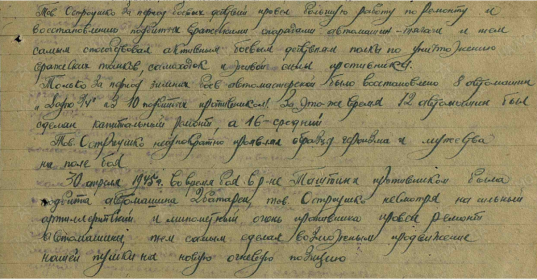 Тов. Остроушко За период боевых действий провел большую работу по ремонту и
восстановлению подбитых вражескими снарядами автомашин-тягачи и тем
самым способствовал активным боевым действиям полка по уничтожению
вражеских танков, самоходок и живой силы противника.
Только за период зимних боев автомастерской было восстановлено 8 автомашин
из 10 подбитых противником. За это же время 12 автомашинам был
сделан капитальный ремонт, а 16-средний
Тов. Остроушко неоднократно проявлял образцы героизма и мужества
на поле боя
30 апреля 1945 г. во время боя в р-не противником была
подбита автомашина 2 батареи, тов. Остроушко несмотря на сильный
артиллерийский и минометный огонь противника провел ремонт
автомашины тем самым сделал возможным продвижение
нашей пушки на новую огневую позицию